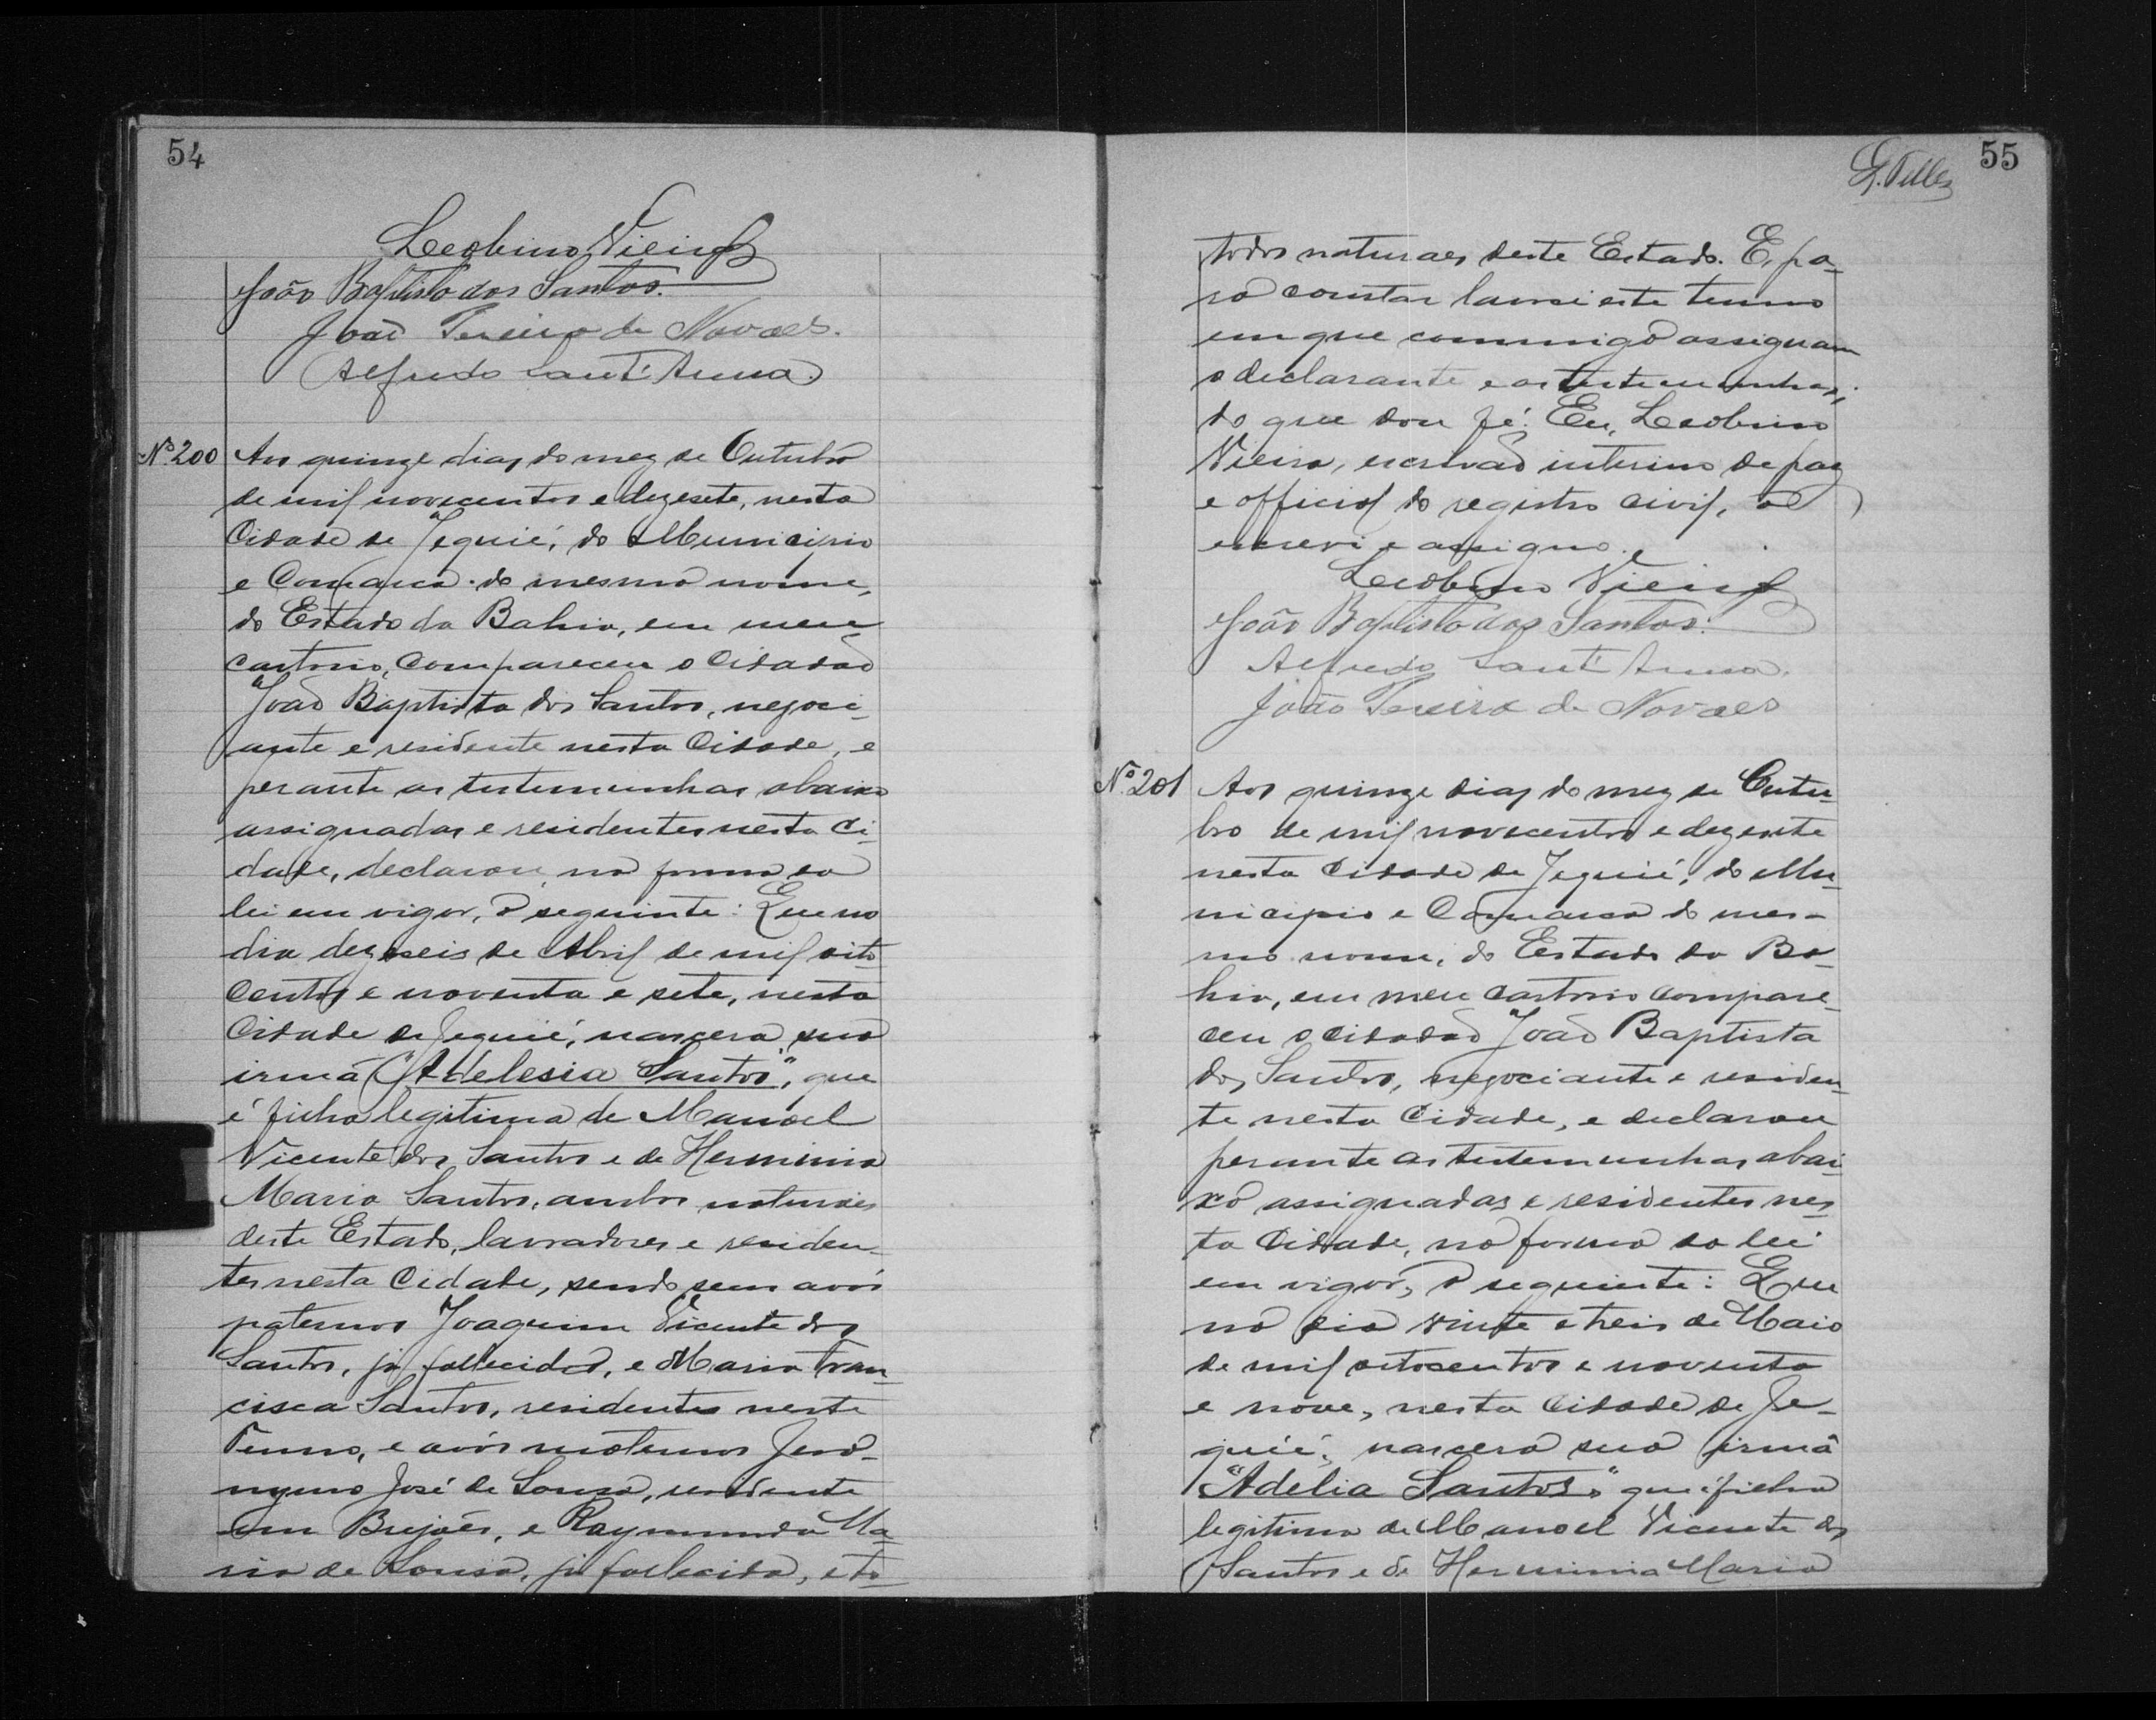 54
Leobino Vieira
João Baptista dos Santos.
João Pereira de Novaes.
Alfredo Sant'Anna.
Nº 200 Aos quinze dias do mez de Outubro
de mil novecentos e dezesete, nesta
Cidade de Jequié, do Municipio
e Comarca do mesmo nome,
do Estado da Bahia, em meu
cartorio, compareceu o cidadão
João Baptista dos Santos, negoci-
ante e residente nesta Cidade, e
perante as testemunhas abaixo
assignadas e residentes nesta Ci-
dade, declarou na forma da
lei em vigor, o seguinte: Que no
dia dezeseis de Abril de mil oito
centos e noventa e sete, nesta
Cidade de Jequié, nascera sua
irmã "Adelesia Santos", que
é filha legitima de Manoel
Vicente dos Santos e de Herminia
Maria Santos, ambos naturaes
deste Estado, lavradores e residen-
tes nesta Cidade, sendo seus avós
paternos Joaquim Vicente dos
Santos, já fallecido, e Maria Fran-
cisca Santos, residentes neste
Termo, e avós maternos Jero-
nymo José de Sousa, residente
em Brejões, e Raymunda Ma-
ria de Sousa, já fallecida, e to-
55
G. Telles
todos naturaes deste Estado. E, pa-
ra constar lavrei este termo
em que commigo assignam
o declarante e as testemunhas;
do que dou fé. Eu, Leobino
Vieira, escrivão interino de paz
e official do registro civil, o
escrevi e assigno.
Leobino Vieira
João Baptista dos Santos.
Alfredo Sant'Anna.
João Pereira de Novaes
Nº 201 Aos quinze dias do mez de Outu-
bro de mil novecentos e dezesete
nesta Cidade de Jequié, do Mu-
nicipio e Comarca do mes-
mo nome, do Estado da Ba-
hia, em meu cartorio compare-
ceu o cidadão João Baptista
dos Santos, negociante e residen-
te nesta Cidade, e declarou
perante as testemunhas abai-
xo assignadas e residentes nes-
ta Cidade, na forma da lei
em vigor, o seguinte: Que
no dia vinte e treis de Maio
de mil oitocentos e noventa
e nove, nesta Cidade de Je-
quié, nascera sua irmã
"Adelia Santos" que é filha
legitima de Manoel Vicente dos
Santos e de Herminia Maria